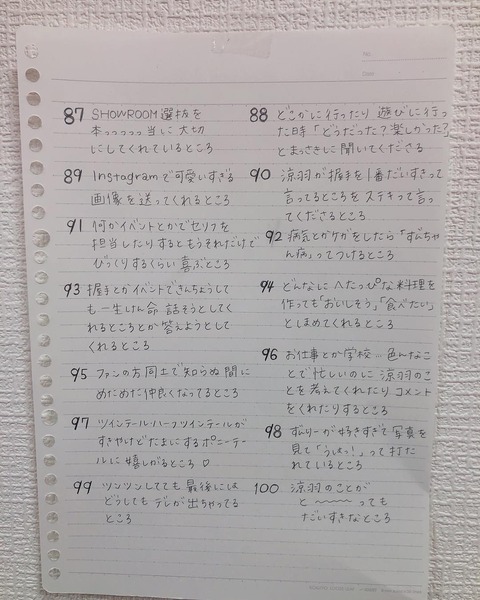 87 SHOWROOM選抜を
本っっっっっ当に大切
にしてくれているところ
88 どこかに行ったり遊びに行っ
た時「どうだった?楽しかった?」
とまっさきに聞いてくださる
89 Instagramで可愛いすぎる
画像を送ってくれるところ
90 涼羽が握手を1番だいすきって
言ってるところをステキって言っ
てくださるところ
91 何かイベントとかでセリフを
担当したりするともうそれだけで
びっくりするくらい喜ぶところ
92 病気とかケガをしたら「ずんちゃ
ん病」ってつけるところ
93 握手とかイベントできんちょうして
も一生けん命話そうとしてく
れるところとか答えようとして
くれるところ
94 どんなにへたっぴな料理を
作っても「おいしそう」「食べたい」
としまめてくれるところ
95 ファンの方同士で知らぬ間に
めためた仲良くなってるところ
96 お仕事とか学校…色んなこ
とで忙しいのに涼羽のこ
とを考えてくれたりコメント
をくれたりするところ
97 ツインテール・ハーフツインテールが
すきやけどたまにするポニーテー
ルに嬉しがるところ♡
98 ずんりーが好きすぎて写真を
見て「うっ!」って打た
れているところ
99 ツンツンしてても最後には
どうしてもデレが出ちゃってる
ところ
100 涼羽のことが
と〜〜〜っても
だいすきなところ